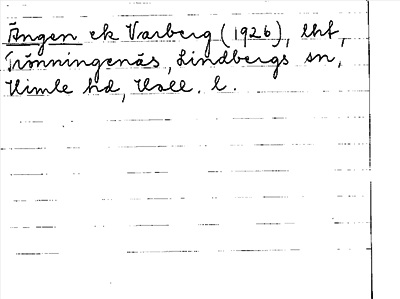 Ängen ek Varberg (1926), lht,
Trönningenäs, Lindbergs sn,
Himle hd, Hall. l.